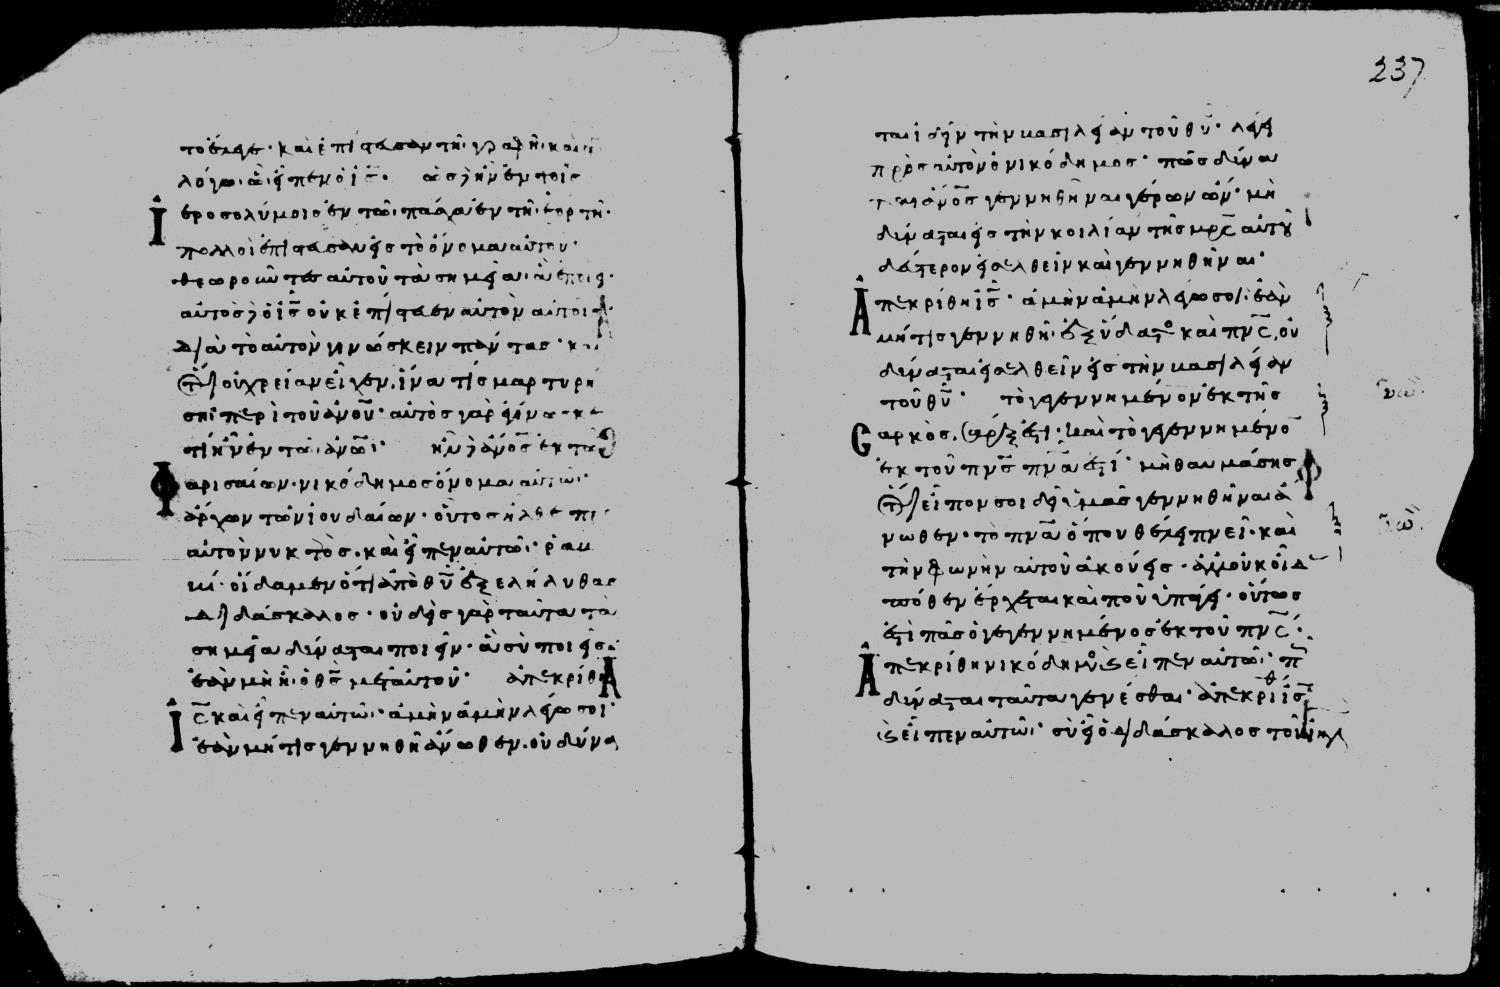 το ἔλεγε· καὶ ἐπίστευσαν τῆ γραφῆ· καὶ τῶ
λόγω ὧ εἶπεν ὁ ἰς̅· ὡς δὲ ἦν ἐν τοῖς
Ἱεροσολύμοις ἐν τῶ πάσχα ἐν τῆ ἑορτῆ·
πολλοὶ ἐπίστευσαν εἰς τὸ ὄνομα αὐτοῦ·
θεωροῦντες αὐτοῦ τὰ σημεῖα ἃ ἐποίει·
αὐτὸς δὲ ὁ ἰς̅ οὐκ ἐπίστευεν αὐτὸν αὐτοῖς
διὰ τὸ αὐτὸν γινώσκειν πάντας· καὶ
ὅτι οὐ χρείαν εἶχεν, ἵνα τίς μαρτυρή
ση περὶ τοῦ ἀνου̅· αὐτὸς γὰρ ἐγίνωσκε
τί ἦν ἐν τῶ ἀνω̅· ἦν δὲ ἀνος̅ ἐκ τῶ
Φαρισαίων· νικόδημος ὄνομα αὐτῶ·
ἄρχων τῶν ἰουδαίων· οὗτος ἦλθε πρὸς
αὐτὸν νυκτὸς· καὶ εἶπεν αὐτῶ· ῥαβ
βί· οἴδαμεν ὅτι ἀπὸ θυ̅ ἐξελήλυθας
διδάσκαλος· οὐδεὶς γὰρ ταῦτα τὰ
σημεῖα δύναται ποιεῖν· ἃ σὺ ποιεῖς·
ἐὰν μὴ ἦ ὁ θς̅ μετ αὐτοῦ· ἀπεκρίθη
Ἰς̅ καὶ εἶπεν αὐτῶ· ἀμὴν ἀμὴν λέγω σοι·
ἐὰν μή τις γεννηθῆ ἄνωθεν· οὐ δύνα
237
ται ἰδεῖν τὴν βασιλείαν τοῦ θυ̅· λέγει
πρὸς αὐτὸν ὁ νικόδημος· πῶς δύνα
ται ἀνος̅ γεννηθῆναι γέρων ὤν· μὴ
δύναται εἰς τὴν κοιλίαν τῆς μρς̅ αὐτοῦ
δεύτερον εἰσελθεῖν καὶ γεννηθῆναι·
Ἀπεκρίθη ἰς̅· ἀμὴν ἀμὴν λέγω σοι· ἐὰν
μή τις γεννηθῆ ἐξ ὕδατος καὶ πνς̅, οὐ
δύναται εἰσελθεῖν εἰς τὴν βασιλείαν
τοῦ θυ̅· τὸ γεγεννημένον ἐκ τῆς
Σαρκὸς, σάρξ ἐστι· καὶ τὸ γεγεννημένον
ἐκ τοῦ πνς̅ πνα̅ ἐστι· μὴ θαυμάσης
ὅτι εἶπόν σοι δεῖ ὑμᾶς γεννηθῆναι ἄ
νωθεν· τὸ πνα̅ ὅπου θέλει πνεῖ· καὶ
τὴν φωνὴν αὐτοῦ ἀκούεις· ἀλλ οὐκ οἶδας
πόθεν ἔρχεται καὶ ποῦ ὑπάγει· οὕτως
ἐστὶ πᾶς ὁ γεγεννημένος ἐκ τοῦ πνς̅·
Ἀπεκρίθη νικόδημος καὶ εἶπεν αὐτῶ· πῶς
δύναται ταῦτα γενέσθαι· ἀπεκρίθη ἰς̅
καὶ εἶπεν αὐτῶ· σὺ εἶ ὁ διδάσκαλος τοῦ ἰηλ